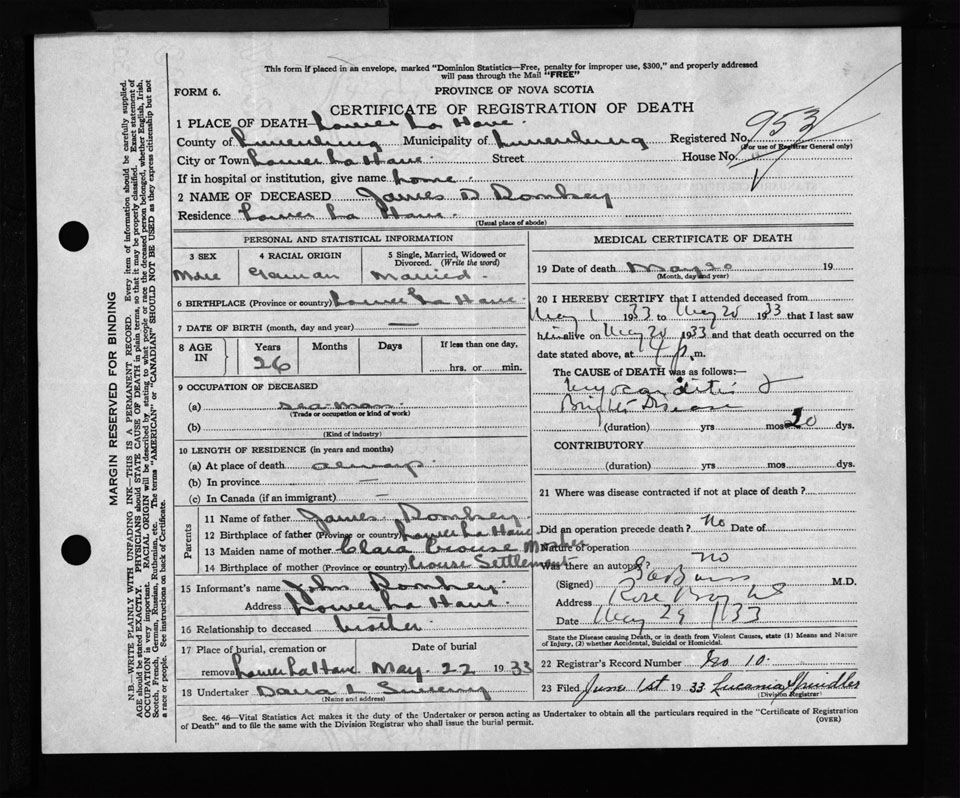 This form if placed in an envelope, marked "Dominion Statistics—Free, penalty for improper use, $300," and properly addressed
will pass through the Mail "FREE"
FORM 6.
PROVINCE OF NOVA SCOTIA
CERTIFICATE OF REGISTRATION OF DEATH
1 PLACE OF DEATH Lower La Have
County of Lunenburg Municipality of Lunenburg Registered No. 953
(For use of Registrar General only)
City or Town Lower La Have Street House No.
If in hospital or institution, give name home
2 NAME OF DECEASED James D Romkey
Residence Lower La Have
(Usual place of abode)
PERSONAL AND STATISTICAL INFORMATION
3 SEX 4 RACIAL ORIGIN 5 Single, Married, Widowed or
Divorced. (Write the word)
Male German Married
6 BIRTHPLACE (Province or country) Lower La Have
7 DATE OF BIRTH (month, day and year) —
8 AGE IN Years Months Days If less than one day,
26 hrs. or min.
9 OCCUPATION OF DECEASED
(a) seaman
(Trade or occupation or kind of work)
(b)
(Kind of industry)
10 LENGTH OF RESIDENCE (in years and months)
(a) At place of death always
(b) In province —
(c) In Canada (if an immigrant) —
Parents
11 Name of father James Romkey
12 Birthplace of father (Province or country) Lower La Have
13 Maiden name of mother Clara Crouse Mosher
14 Birthplace of mother (Province or country) Crouse Settlement
15 Informant's name John Romkey
Address Lower La Have
16 Relationship to deceased brother
17 Place of burial, cremation or Date of burial
removal Lower La Have May 22 1933
18 Undertaker L
(Name and address)
MEDICAL CERTIFICATE OF DEATH
19 Date of death May 20 19
(Month, day and year)
20 I HEREBY CERTIFY that I attended deceased from
May 1 1933 to May 20 1933 that I last saw
him alive on May 20 1933 and that death occurred on the
date stated above, at p.m.
The CAUSE of DEATH was as follows:—
Myocarditis &
Brights Disease
(duration) yrs mos 20 dys.
CONTRIBUTORY
(duration) yrs mos dys.
21 Where was disease contracted if not at place of death?
Did an operation precede death? No Date of
Nature of operation
Was there an autopsy? No
(Signed) M.D.
Address Rose Bay NS
Date May 29 1933
State the Disease causing Death, or in death from Violent Causes, state (1) Means and Nature
of Injury, (2) whether Accidental, Suicidal or Homicidal.
22 Registrar's Record Number No 10
23 Filed June 1st 1933 Lucania Spindler
(Division Registrar)
Sec. 46—Vital Statistics Act makes it the duty of the Undertaker or person acting as Undertaker to obtain all the particulars required in the "Certificate of Registration
of Death" and to file the same with the Division Registrar who shall issue the burial permit.
(OVER)
MARGIN RESERVED FOR BINDING
N.B.—WRITE PLAINLY WITH UNFADING INK—THIS IS A PERMANENT RECORD. Every item of information should be carefully supplied.
AGE should be stated EXACTLY. PHYSICIANS should STATE CAUSE OF DEATH in plain terms, so that it may be properly classified. Exact statement of
OCCUPATION is very important. RACIAL ORIGIN will be described by stating to what people or race the deceased person belonged, whether English, Irish,
Scotch, French, German, Russian, Ruthenian, etc. The terms "AMERICAN" or "CANADIAN" SHOULD NOT BE USED as they express citizenship but not
a race or people. See instructions on back of Certificate.